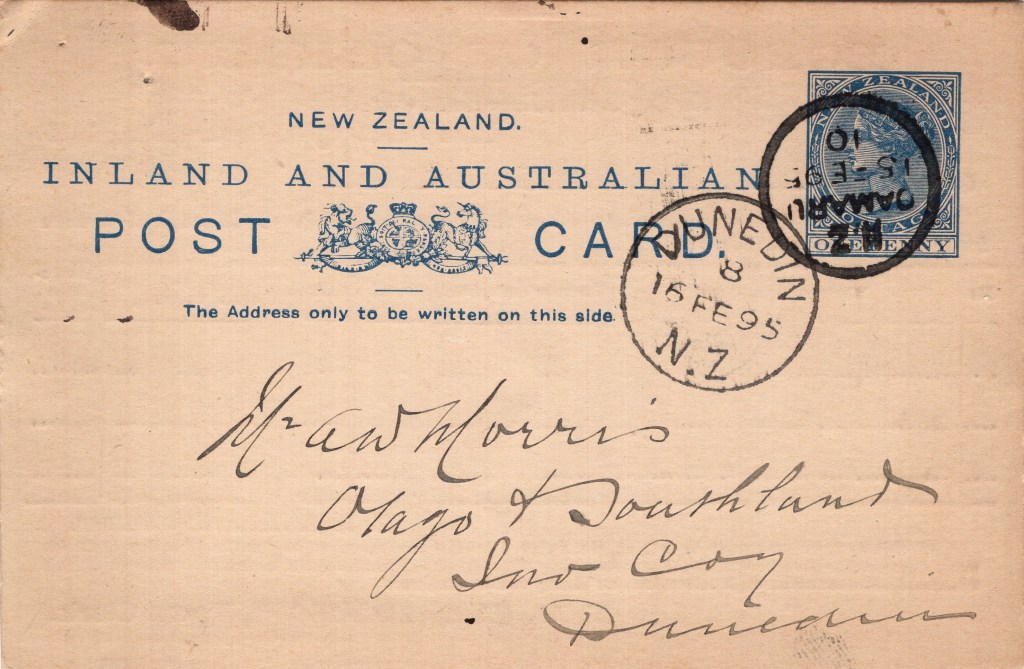 NEW ZEALAND.
INLAND AND AUSTRALIAN
POST CARD.
The Address only to be written on this side.
NEW ZEALAND
POSTAGE
ONE PENNY
OAMARU
15 FE 95
10
N.Z
DUNEDIN
8
16 FE 95
N.Z
Mr A W Morris
Otago & Southland
Inv Coy
Dunedin